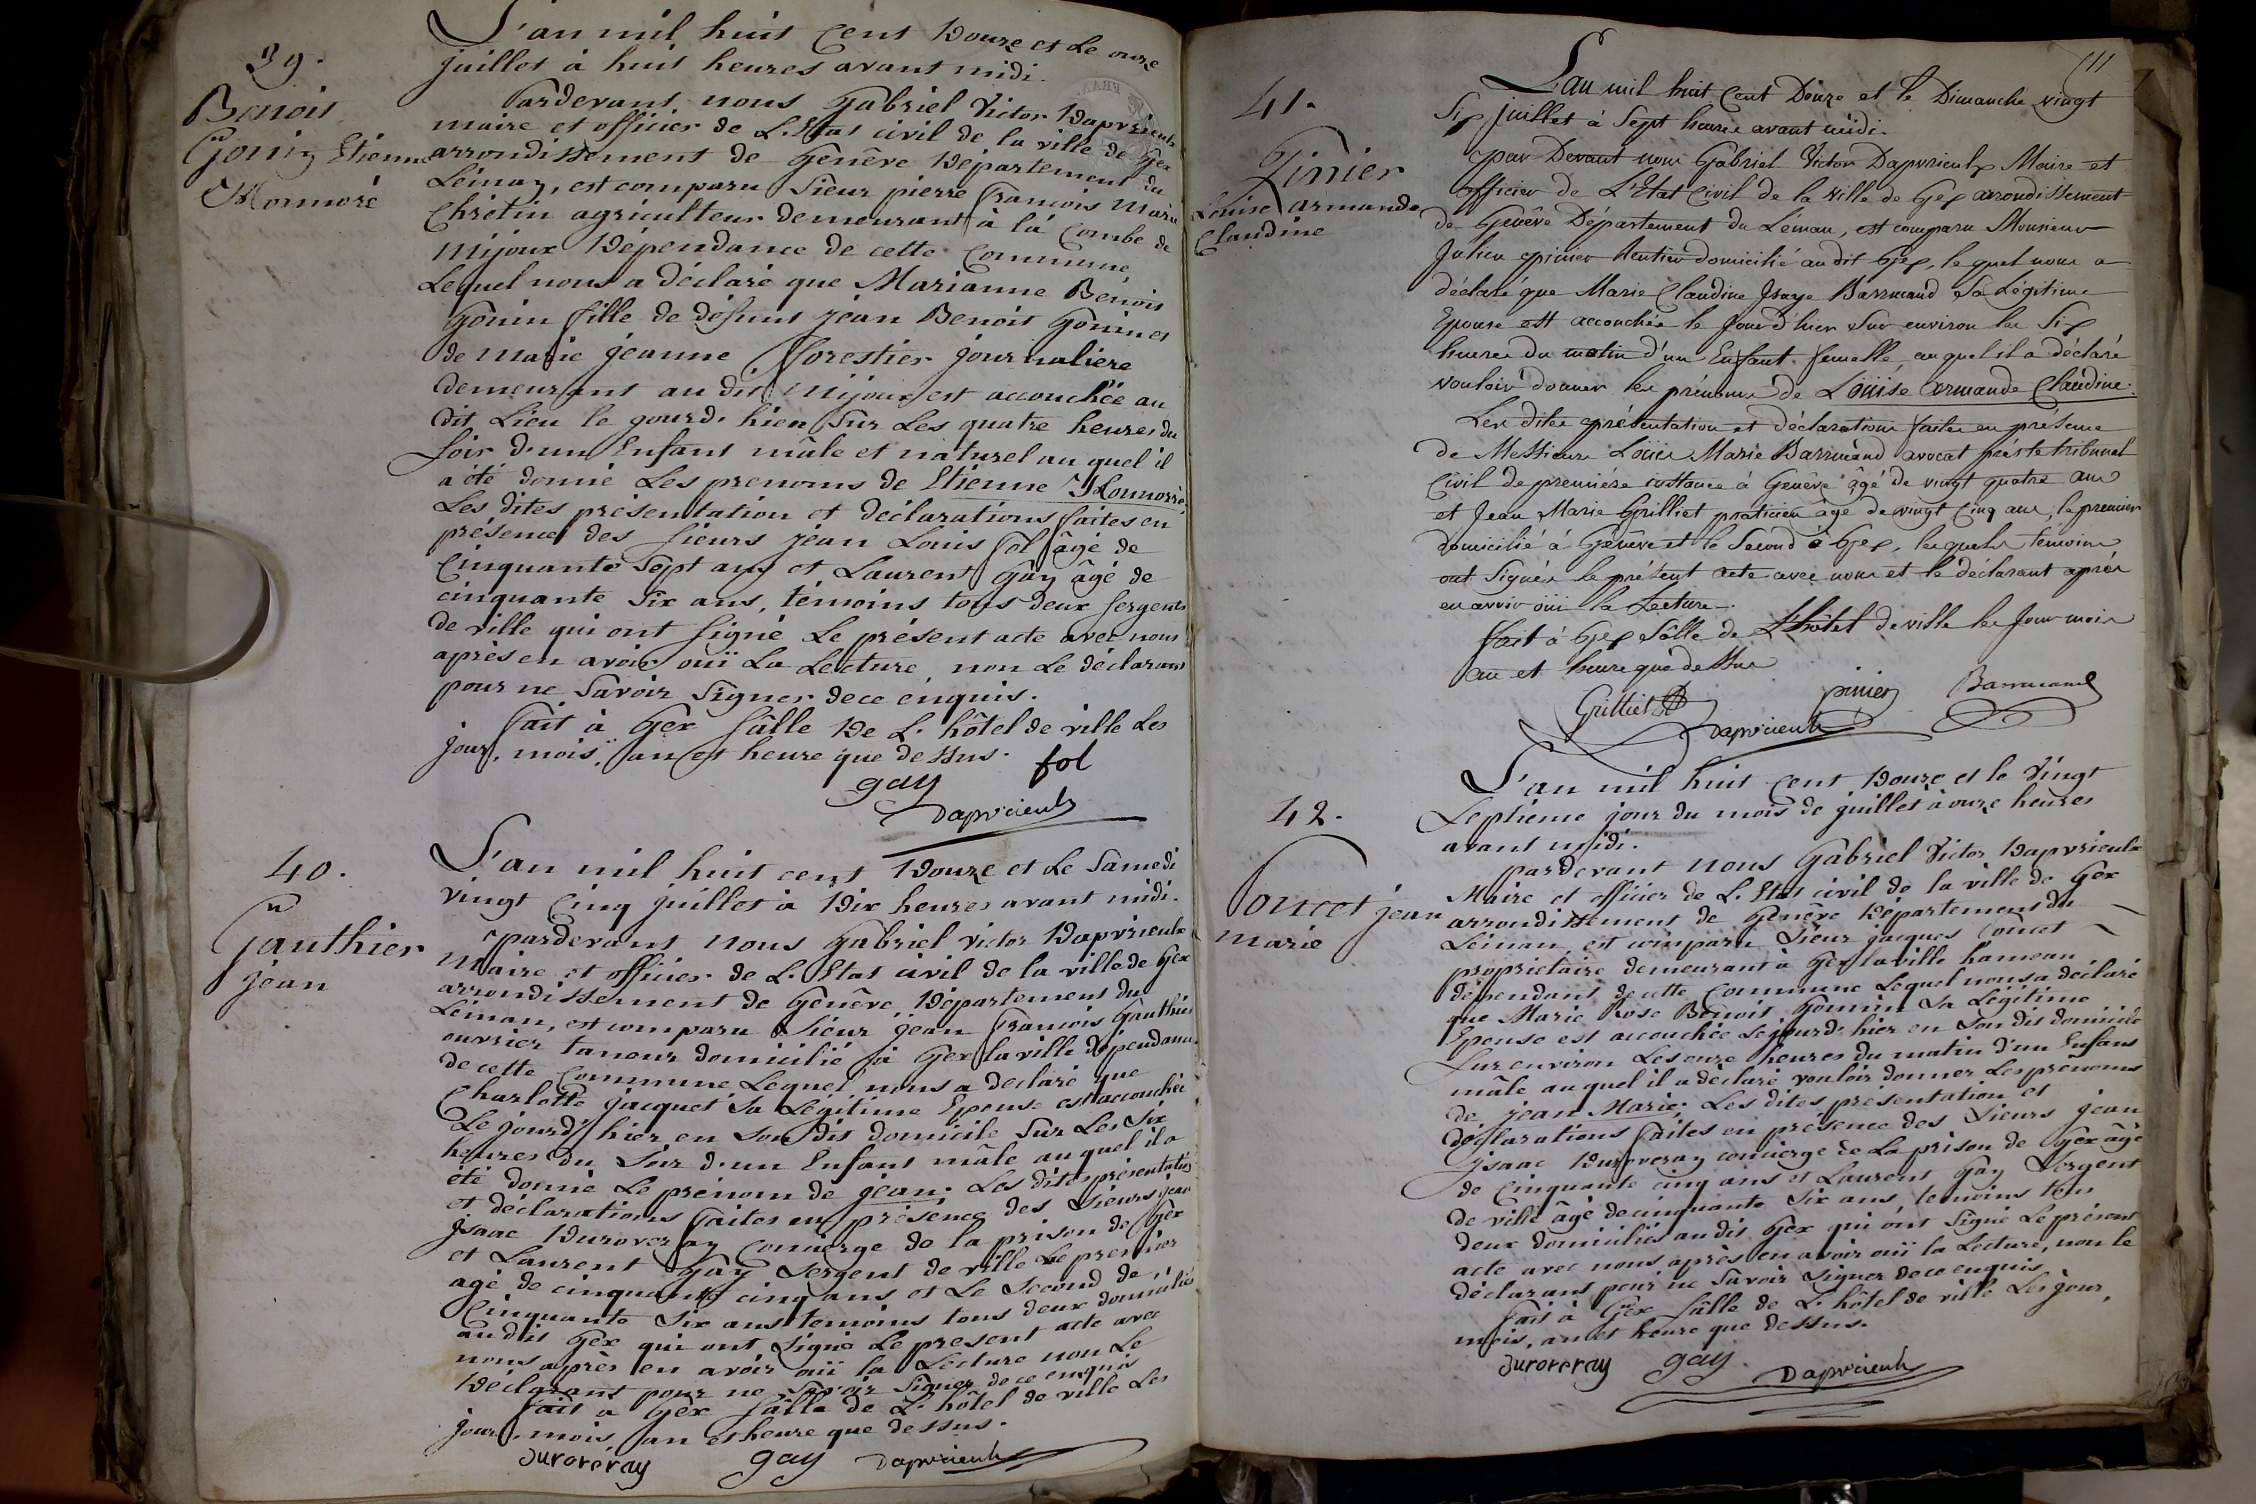 39.
Benoit
Gonin Etienne
Monmoré
L'an mil huit Cent Douze et Le onze
juillet à huit heures avant midi.
Pardevant nous Gabriel Victor Dapvrieulx
maire et officier de L'Etat civil de la ville de Gex
arrondissement de Genêve Département du
Léman, est comparu Sieur pierre François Marie
Chrétin agriculteur demeurant à la Combe de
Mijoux Dépendance de cette Commune
Lequel nous a déclaré que Marianne Benoit
Gonin fille de défunt jean Benoit Gonin et
de marie jeanne forestier journaliere
demeurant au dit Mijoux est accouchée au
dit Lieu le jourd'hier Sur Les quatre heures du
Soir d'un Enfant mâle et naturel au quel il
a été donné Les prenoms de Etienne Monmoré,
Les dites présentation et déclarations faites en
présence des Sieurs jean Louis fol âgé de
Cinquante Sept ans et Laurent Gay âgé de
cinquante Six ans, témoins tous deux Sergents
de ville qui ont Signé Le présent acte avec nous
après en avoir ouï La Lecture, non Le déclarant
pour ne Savoir Signer de ce enquis.
fait à Gex Sâlle De L'hôtel de ville Les
jour, mois, an et heure que dessus.
gay fol
Dapvrieulx
40.
Gauthier
jean
L'an mil huit cent Douze et Le Samedi
vingt Cinq juillet à Dix heures avant midi.
pardevant nous Gabriel victor Dapvrieulx
Maire et officier de L'Etat civil de la ville de Gex
arrondissement de Genêve, Département du
Léman, est comparu Sieur jean François Gauthier
ouvrier taneur domicilié à Gex la ville dépendance
de cette Commune Lequel nous a déclaré que
Charlotte jacquet Sa Légitime Epouse est accouchée
Le jourd'hier en Son dit domicile Sur Les Six
heures du Soir d'un Enfant mâle au quel il a
été donné Le prénom de jean. Les dites présentation
et déclarations faites en présence des Sieurs jean
jsaac Duroveray Concierge de la prison de Gex
et Laurent Gay Sergent de ville Le premier
agé de cinquante cinq ans et Le Second de
Cinquante Six ans témoins tous deux domiciliés
au dit Gex qui ont Signé Le présent acte avec
nous après en avoir ouï la Lecture non Le
Déclarant pour ne Savoir Signer de ce enquis
fait à Gex Sâlle de L'hôtel de ville Les
jour, mois, an et heure que dessus.
Duroveray gay Dapvrieulx
111
41.
Pinier
Louise armande
Claudine
L'an mil huit Cent Douze et le Dimanche vingt
Six juillet à Sept heures avant midi.
Par Devant nous Gabriel Victor Dapvrieulx Maire et
officier de L'Etat Civil de la ville de Gex arrondissement
de Genêve Département du Léman, est comparu Monsieur
Julien Pinier Rentier domicilié audit Gex, lequel nous a
déclaré que Marie Claudine Isaye Barrucand Sa Légitime
Epouse est accouchée le Jourd'hier Sur environ les Six
heures du matin d'un Enfant femelle au quel il a déclaré
vouloir donner les prénoms de Loüise armande Claudine.
Les dites présentation et déclarations faites en présence
de Messieurs Loüis Marie Barrucand avocat près le tribunal
Civil de première instance à Genêve âgé de vingt quatre ans
et Jean Marie Grilliet praticien âgé de vingt Cinq ans, le premier
domicilié à Genêve et le Second à Gex, lesquels temoins
ont Signés le présent acte avec nous et le déclarant après
en avoir ouï la Lecture.
fait à Gex Sâlle de L'hôtel de ville les Jour mois
an et heure que dessus
Grilliet pinier Barrucand
Dapvrieulx
42.
Poncet jean
marie
L'an mil huit Cent Douze et le Vingt
Septième jour du mois de juillet à onze heures
avant midi.
pardevant nous Gabriel Victor Dapvrieulx
Maire et officier de L'Etat civil de la ville de Gex
arrondissement de Genêve Département du
Léman, est comparu Sieur jacques Poncet
proprietaire demeurant à Gex la ville hameau
dépendant de cette Commune Lequel nous a déclaré
que Marie Rose Benoit Gonnin Sa Légitime
Epouse est accouchée Le jourd'hier en Son dit domicile
Sur environ Les onze heures du matin d'un Enfant
mâle au quel il a déclaré vouloir donner Les prenoms
de jean Marie. Les dites présentation et
déclarations faites en présence des Sieurs jean
jsaac Duroveray concierge de La prison de Gex âgé
de Cinquante cinq ans et Laurent Gay Sergent
de ville âgé de cinquante Six ans, temoins tous
deux domiciliés au dit Gex qui ont Signé Le présent
acte avec nous après en avoir ouï la Lecture, non le
déclarant pour ne Savoir Signer de ce enquis
fait à Gex Sâlle de L'hôtel de ville Les jour,
mois, an et heure que dessus.
Duroveray gay. Dapvrieulx